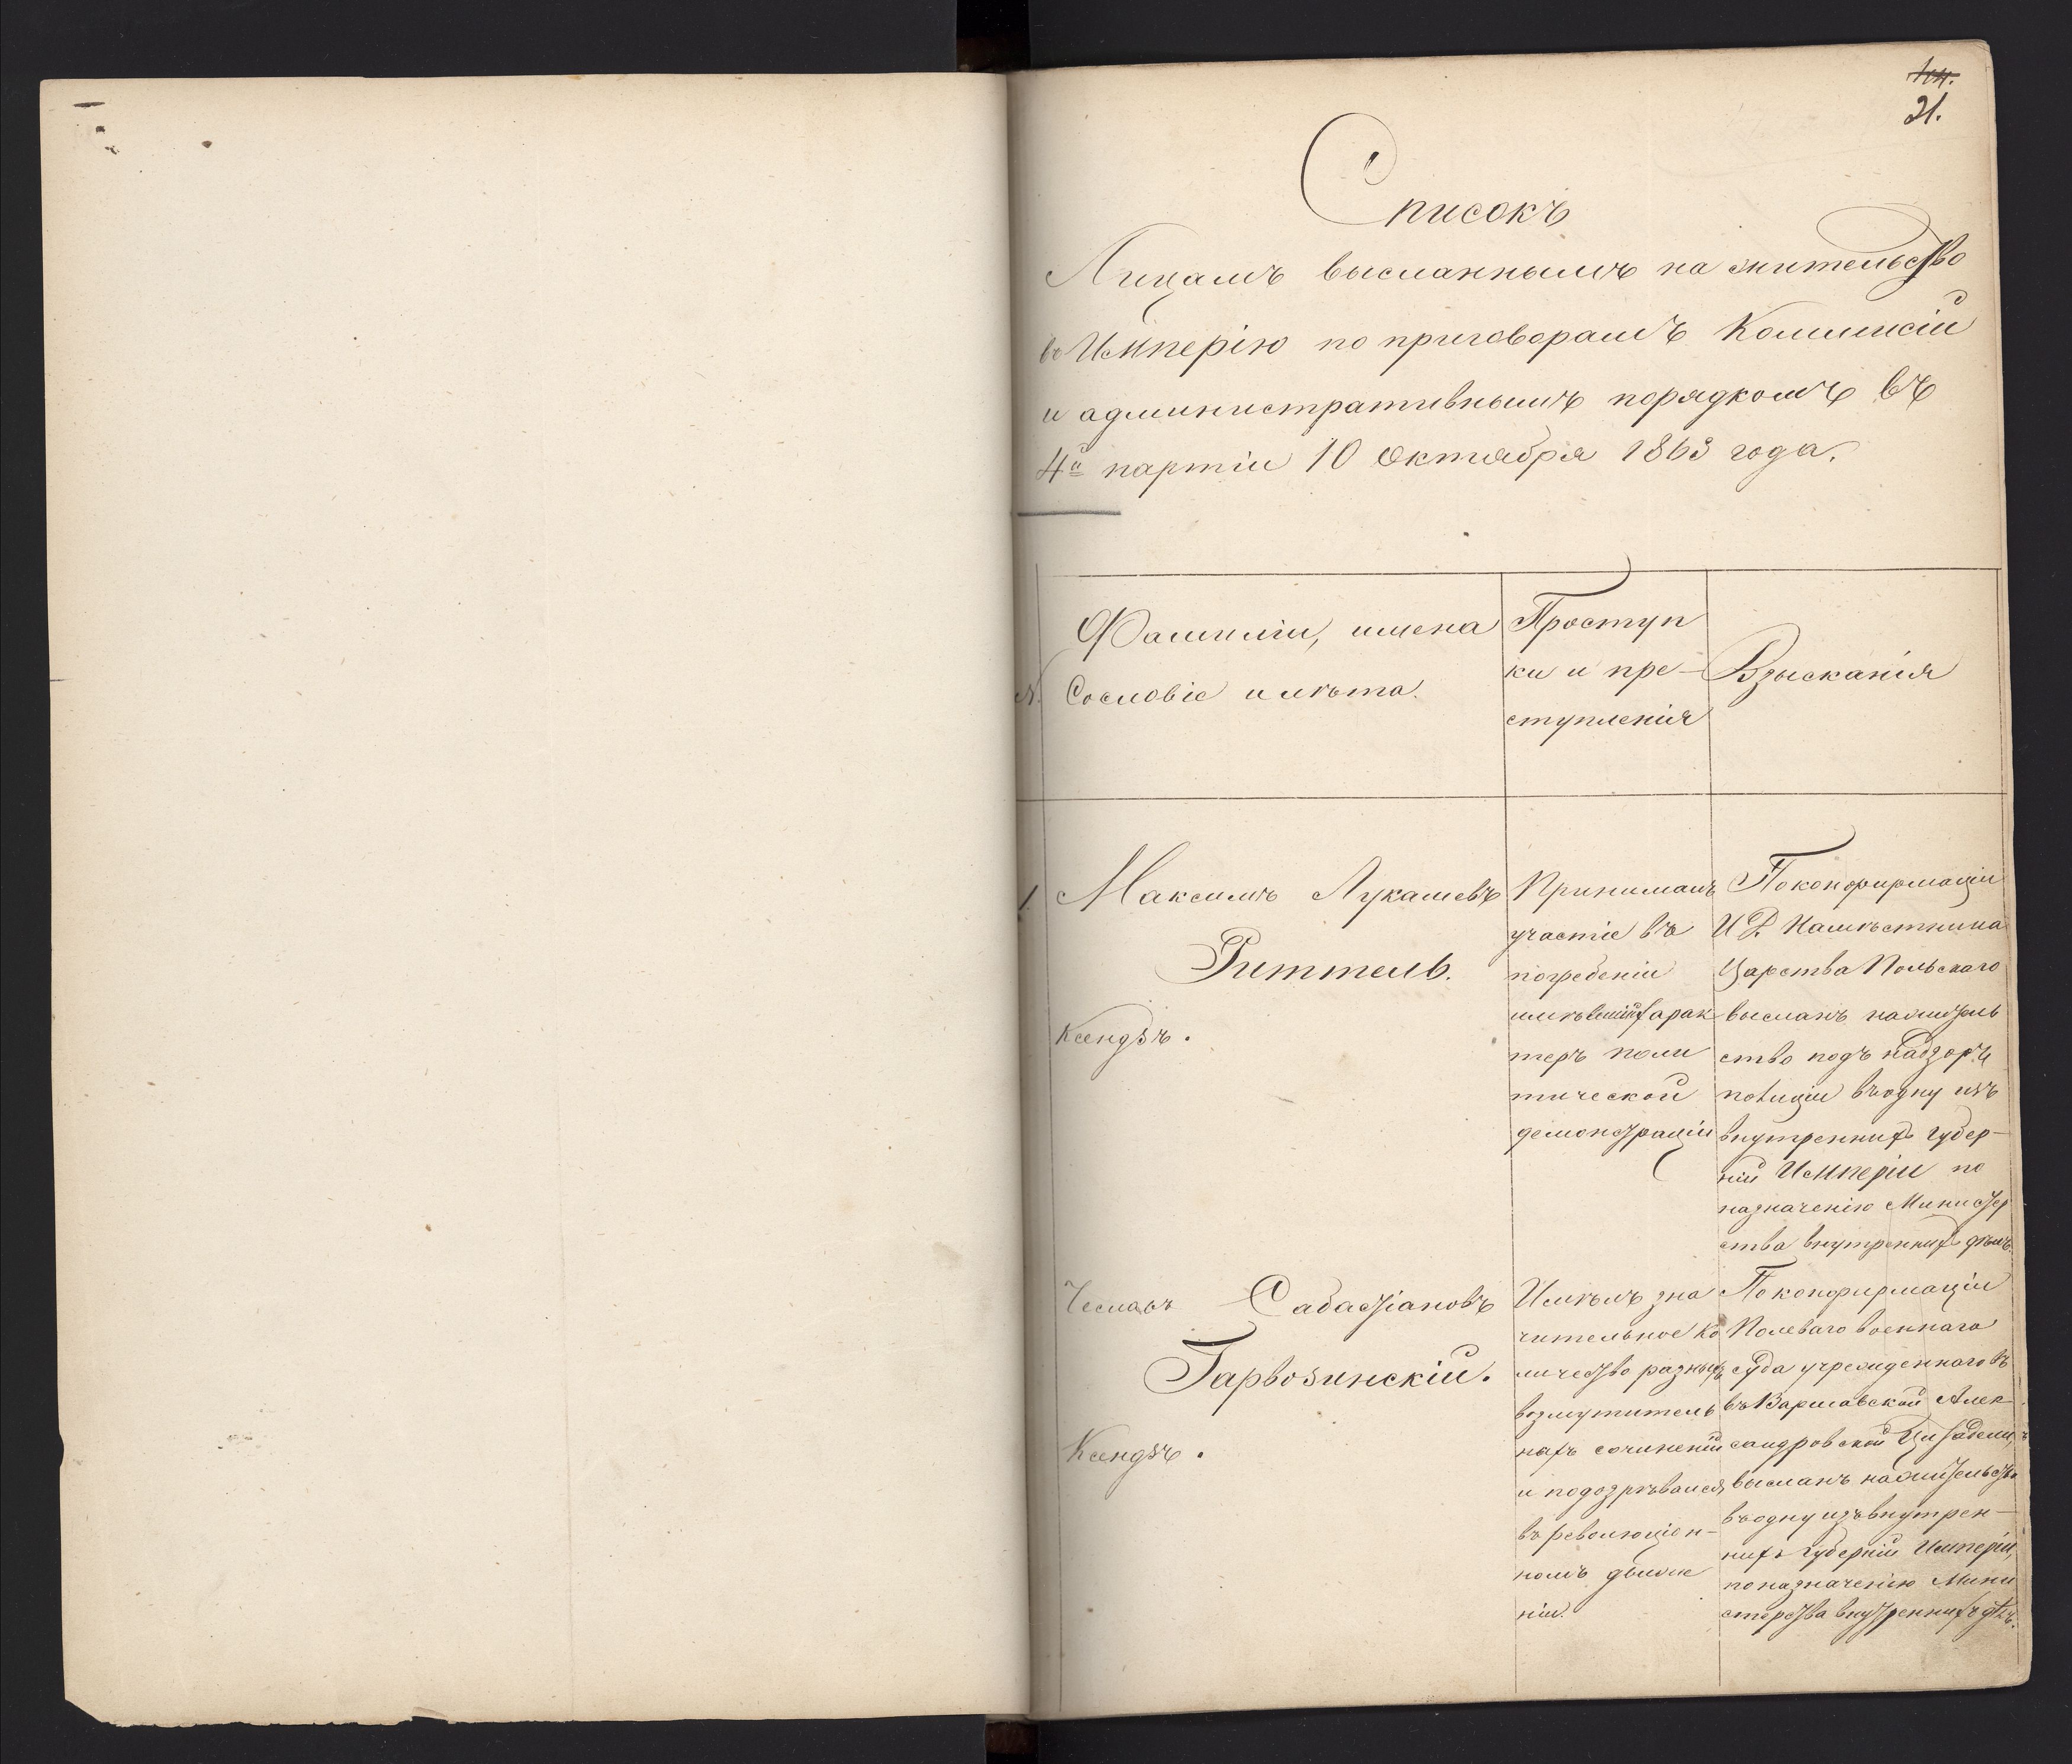 21.
Списокъ
Лицамъ высланнымъ на жительство
въ Имперію по приговорамъ Коммисіи
и административнымъ порядкомъ въ
4й партіи 10 Октября 1863 года.
Фамиліи, имена
Сословіе и лѣта.
Проступ
ки и пре-
ступленія
Взысканія
1. Максимъ Лукашевъ
Риттель.
Ксендзъ.
Принималъ
участіе въ
погребеніи
имѣвшихъ харак
теръ поли
тической
демонстраціи
По конфирмаціи
И. Д. Намѣстника
Царства Польскаго
высланъ на житель
ство подъ надзоръ
полиціи въ одну изъ
внутреннихъ губер-
ній Имперіи по
назначенію Министер
ства внутреннихъ дѣлъ.
Чеславъ Сабастіановъ
Гарвозинскій.
Ксендзъ.
Имѣлъ зна
чительное ко
личество разныхъ
возмутитель
ныхъ сочиненій
и подозрѣвался
въ революціон-
номъ движе
ніи.
По конфирмаціи
Полеваго военнаго
суда учрежденнаго въ
въ Варшавской Алек-
сандровской Цитадели,
высланъ на жительство
въ одну изъ внутрен-
нихъ губерній Имперіи,
по назначенію Мини
стерства внутреннихъ дѣлъ.